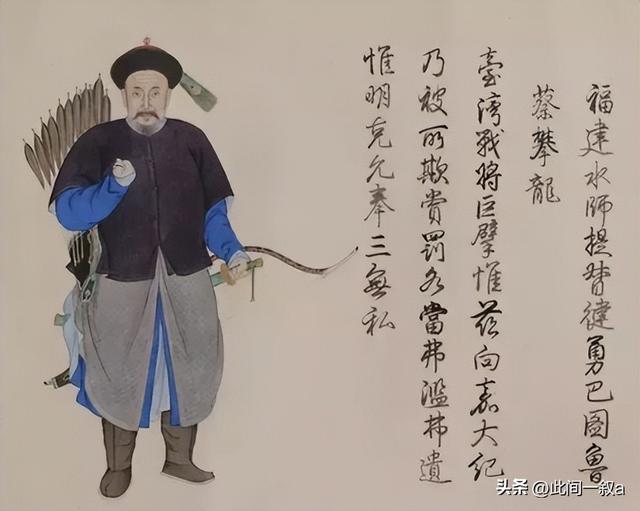 福建水師提督健勇巴圖魯
蔡攀龍
臺湾戰將巨擘惟茲向嘉大紀
乃被所欺賞罰各當弗濫弗遺
惟明克允奉三無私
头条 @此间一叙a